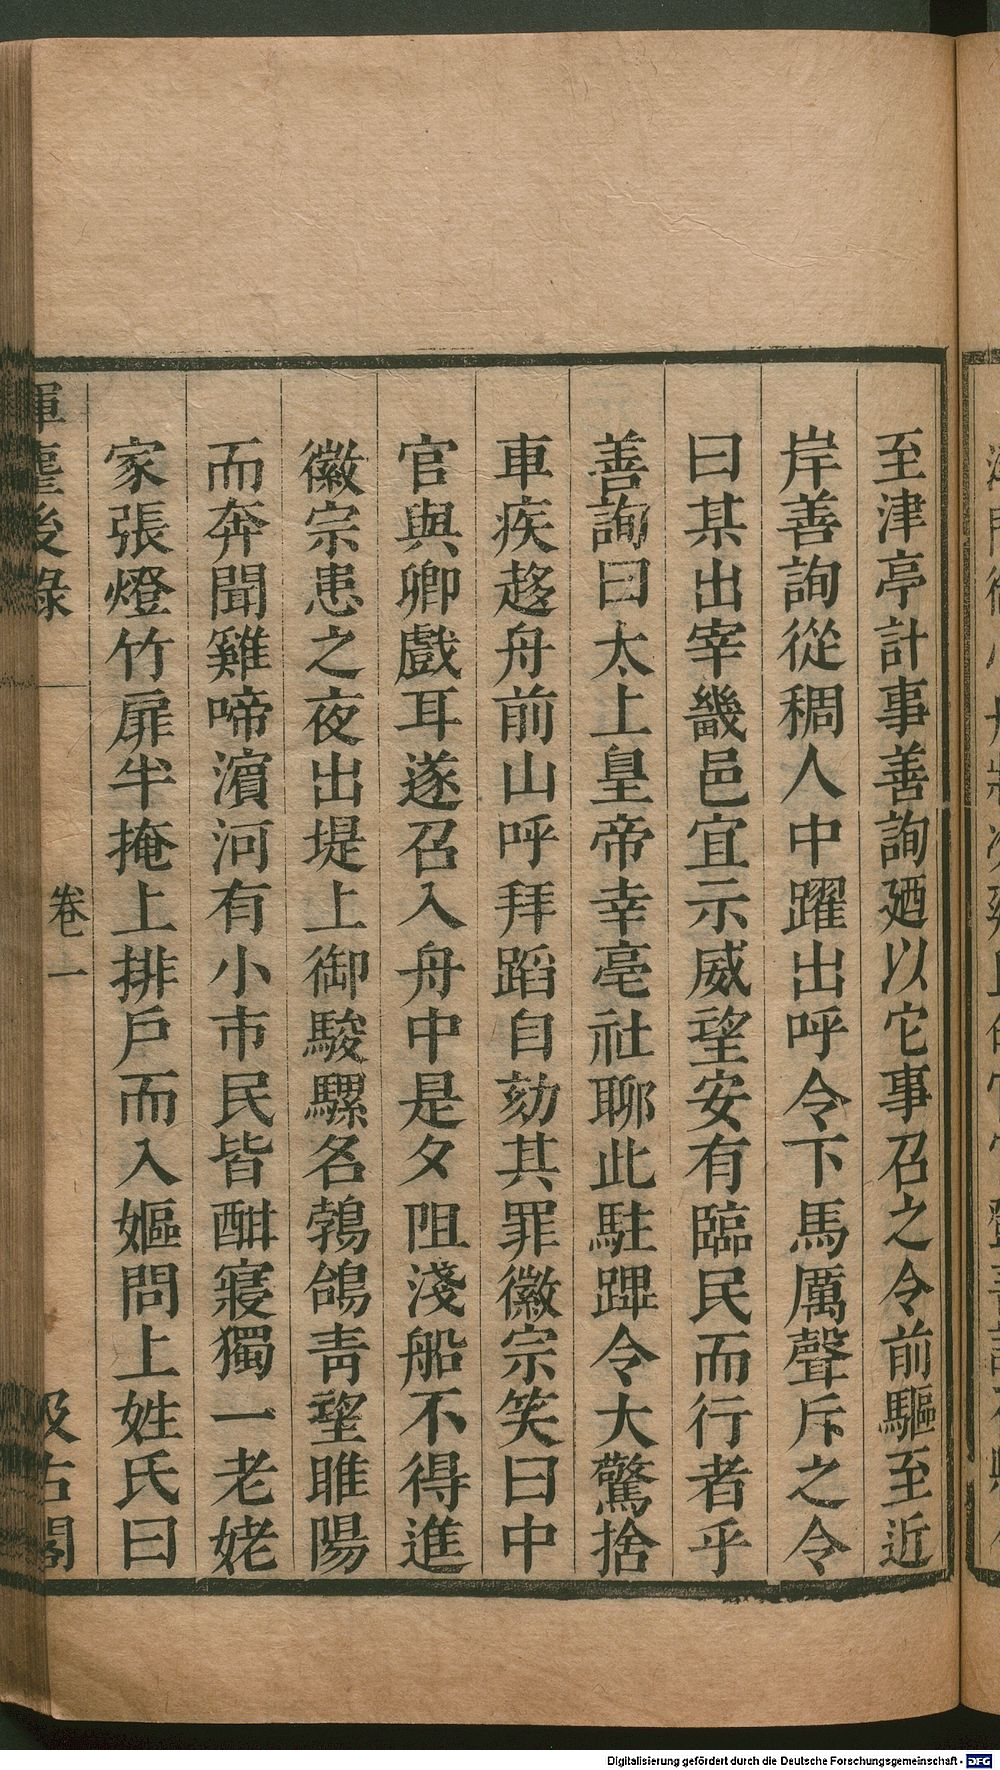 至津亭計事善詢廼以它事召之令前驅至近
岸善詢從稠人中躍出呼令下馬厲聲斥之令
曰某出宰畿邑宜示威望安有臨民而行者乎
善詢曰太上皇帝幸亳社聊此駐蹕令大驚捨
車疾趍舟前山呼拜蹈自劾其罪徽宗笑曰中
官與卿戲耳遂召入舟中是夕阻淺船不得進
徽宗患之夜出堤上御駿騾名鵓鴿青望睢陽
而奔聞雞啼濵河有小市民皆酣寢獨一老姥
家張燈竹扉半掩上排戶而入嫗問上姓氏曰
揮麈後錄
卷一
汲古閣
Digitalisierung gefördert durch die Deutsche Forschungsgemeinschaft - DFG